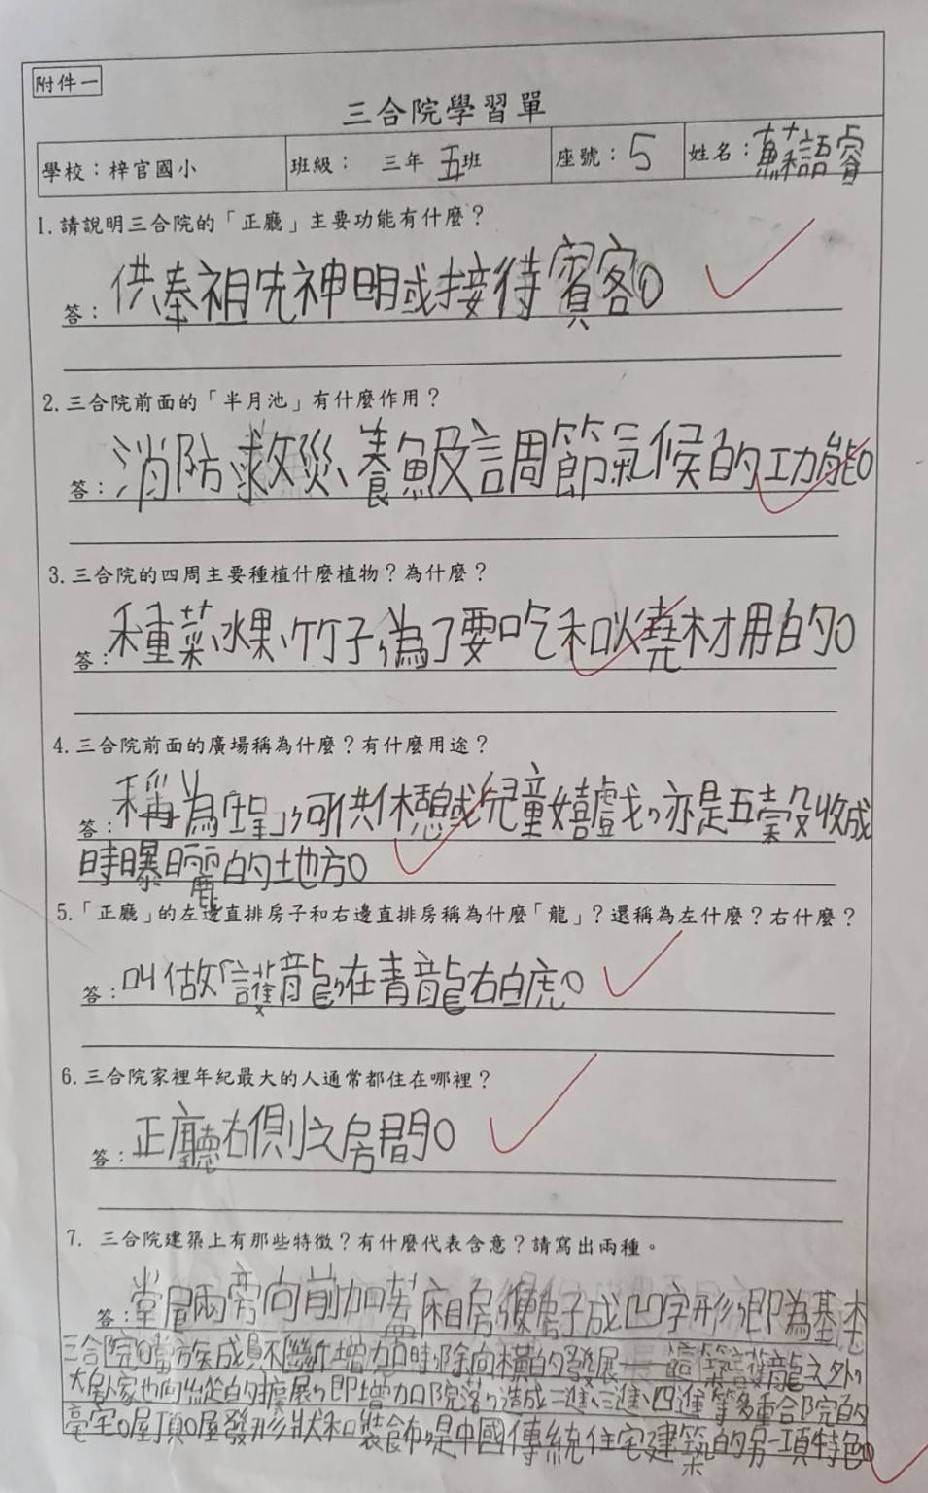 附件一
三合院學習單
學校：梓官國小 班級： 三年 五班 座號：5 姓名：蘇語睿
1.請說明三合院的「正廳」主要功能有什麼？
答：供奉祖先神明或接待賓客。
2.三合院前面的「半月池」有什麼作用？
答：消防、救災、養魚及調節氣候的功能。
3.三合院的四周主要種植什麼植物？為什麼？
答：種菜、水果、竹子，為了要吃和燒材用的。
4.三合院前面的廣場稱為什麼？有什麼用途？
答：稱為「埕」，可供休憩或兒童嬉戲，亦是五榖收成
時曝曬的地方。
5.「正廳」的左邊直排房子和右邊直排房稱為什麼「龍」？還稱為左什麼？右什麼？
答：叫做「護龍，在青龍右白虎。
6.三合院家裡年紀最大的人通常都住在哪裡？
答：正廳右側之房間。
7. 三合院建築上有那些特徵？有什麼代表含意？請寫出兩種。
答：堂屋兩旁向前加蓋廂房，房子成凹字形，即為基本
三合院。當族成員不斷增加時，除向橫的發展 護龍之外，
大家也向縱的擴展，即增加院落，造成二進、三進、四進等多重合院的
豪宅。屋頂。屋發形狀和裝飾，是中國傳統住宅建築的另一項特色。